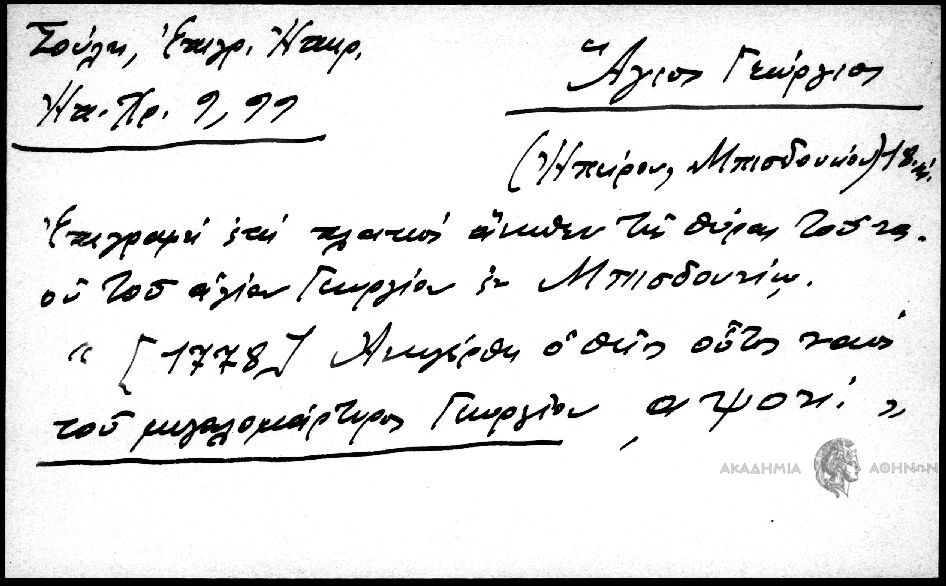 Σούλη, Ἐπιγρ. Ἠπειρ.
Ἠπ. Χρ. 9, 99
Ἅγιος Γεώργιος
(Ἠπείρου, Μπισδουνίου) 18.
Ἐπιγραφή ἐπί πλακός ἄνωθεν τῆς θύρας τοῦ να-
οῦ τοῦ ἁγίου Γεωργίου ἐν Μπισδουνίῳ.
" [1778] Ἀνηγέρθη ὁ θεῖος οὗτος ναός
τοῦ μεγαλομάρτυρος Γεωργίου ͵αψοη΄ "
ΑΚΑΔΗΜΙΑ ΑΘΗΝΩΝ